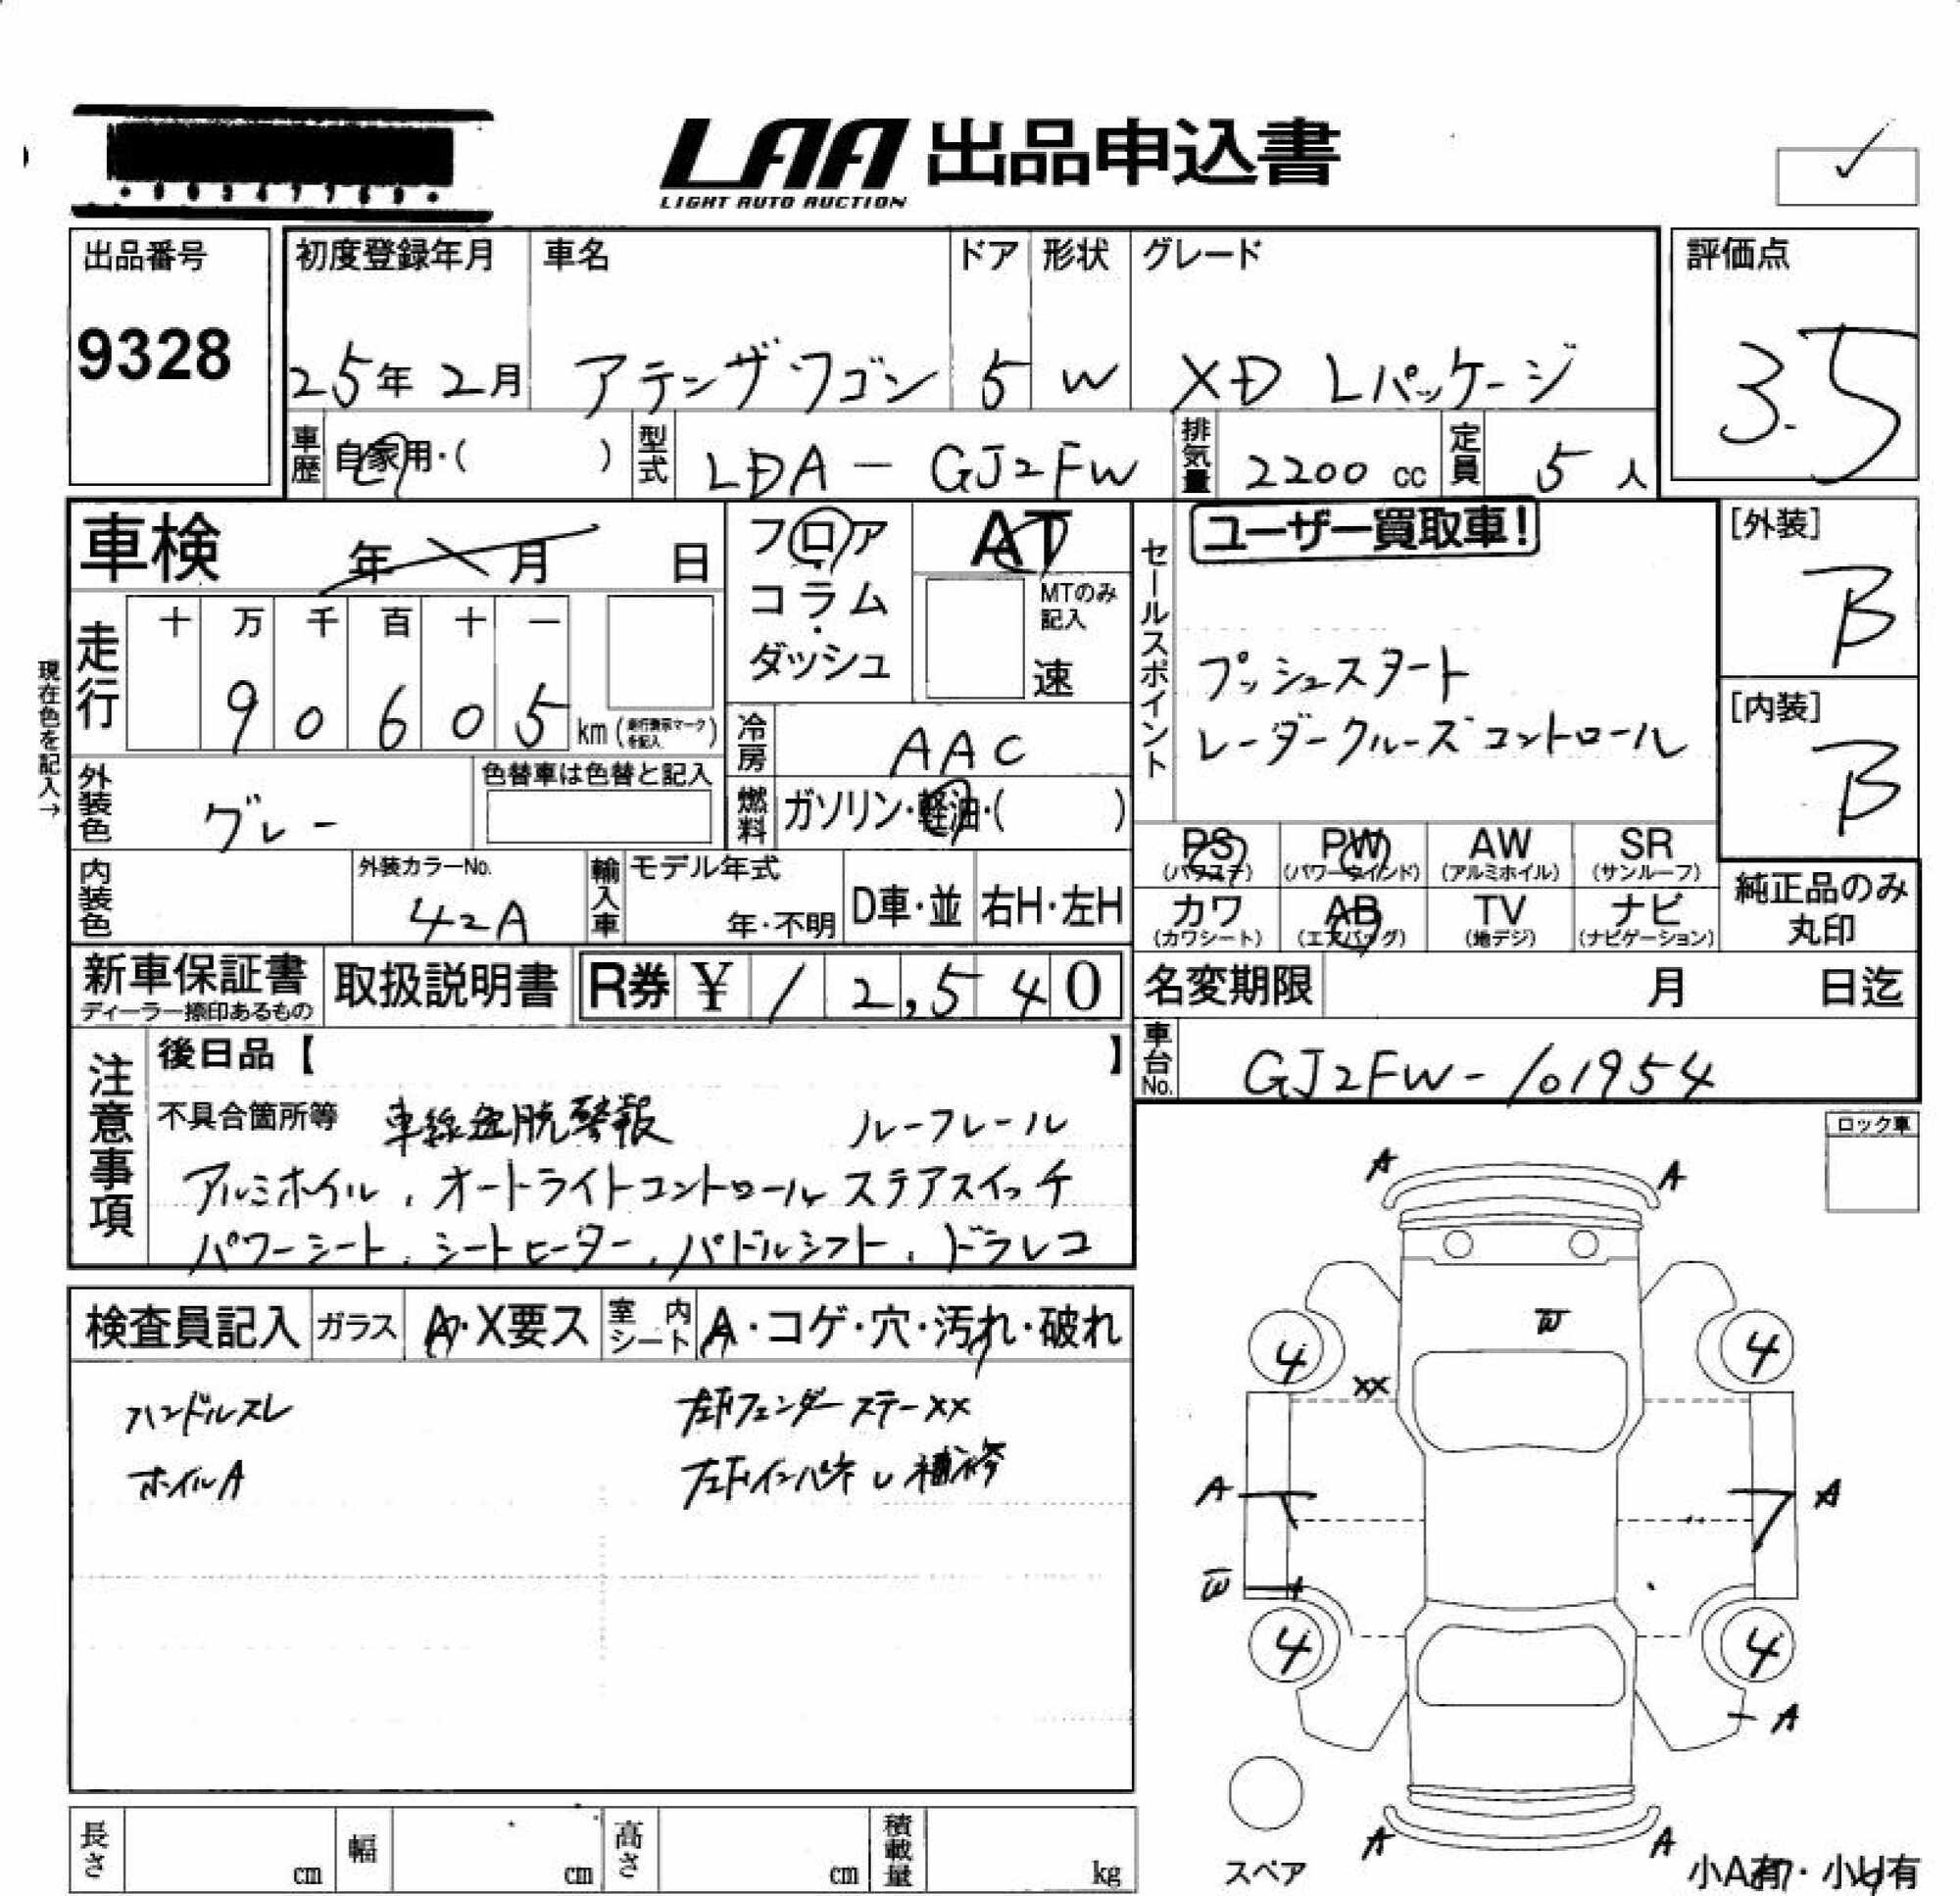 LAA 出品申込書
LIGHT AUTO AUCTION
出品番号
9328
初度登録年月
25年 2月
車名
アテンザワゴン
ドア
5
形状
W
グレード
XD Lパッケージ
評価点
3.5
車歴 自家用・( )
型式 LDA-GJ2FW
排気量 2200 cc
定員 5 人
車検 年 月 日
フロア
コラム
・
ダッシュ
AT
MTのみ
記入
速
セールスポイント
ユーザー買取車!
プッシュスタート
レーダークルーズコントロール
[外装]
B
[内装]
B
現在色を記入→
走行
十 万 千 百 十 一
9 0 6 0 5 km (走行換示マークを記入)
冷房 AAC
燃料 ガソリン・軽油・( )
外装色 グレー
色替車は色替と記入
内装色
外装カラーNo.
42A
輸入車
モデル年式
年・不明
D車・並
右H・左H
PS (パワステ)
PW (パワーウインド)
AW (アルミホイル)
SR (サンルーフ)
カワ (カワシート)
AB (エアバッグ)
TV (地デジ)
ナビ (ナビゲーション)
純正品のみ
丸印
新車保証書
ディーラー捺印あるもの
取扱説明書
R券 ¥ 12,540
名変期限 月 日迄
車台No. GJ2FW-101954
注意事項
後日品【 】
不具合箇所等 車線逸脱警報 ルーフレール
アルミホイル、オートライトコントロール ステアスイッチ
パワーシート、シートヒーター、パドルシフト、ドラレコ
ロック車
検査員記入
ガラス A・X要ス
室内シート A・コゲ・穴・汚れ・破れ
ハンドルスレ
左Fフェンダーステーxx
ホイルA
左Fインパネし補修
A A
W
4 4
xx
A A
W
4 4
A
A A
スペア
小A有・小U有
長さ cm
幅 cm
高さ cm
積載量 kg